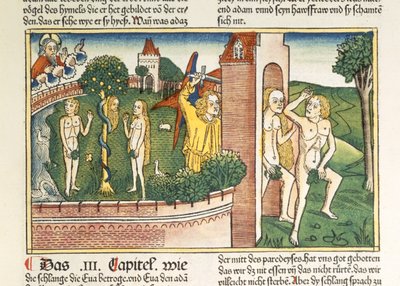 vögel des hymels die er het gebildet võ der er
den. das er sy heyße. Wañ was adaz
end adam vnnd seyn hawsfraw vnd sy schamtē
sich nit.
Das .III. Capitel. wie
die schlange die Eua betroge. vnd Eua den adā
der mitt des paredeyses. hat vns got gebotten
das wir dz nit essen vñ das nicht rürtē. das wir
villeicht nicht sterben. Aber dy schlang sprach zu